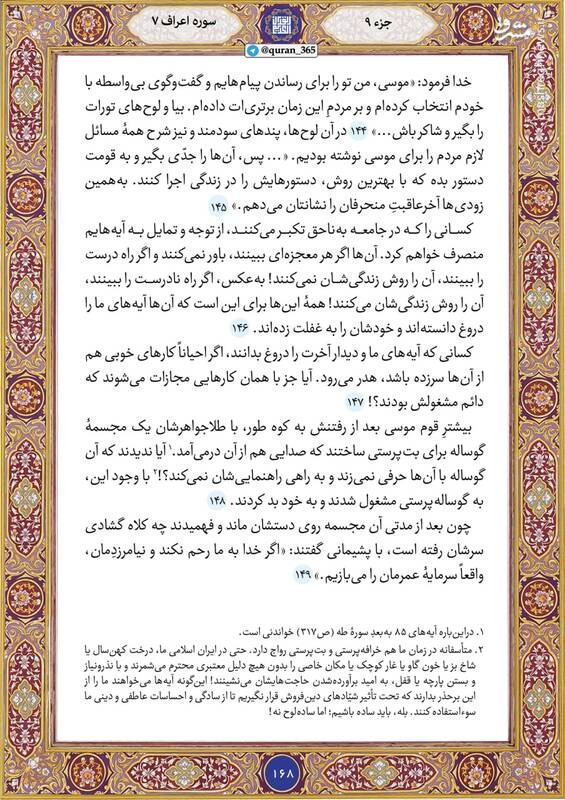 جزء ۹
سوره اعراف ۷
@quran_365
مشرق
خدا فرمود: «موسی، من تو را برای رساندن پیام‌هایم و گفت‌وگوی بی‌واسطه با
خودم انتخاب کرده‌ام و بر مردمِ این زمان برتری‌ات داده‌ام. بیا و لوح‌های تورات
را بگیر و شاکر باش...» ۱۴۴ در آن لوح‌ها، پندهای سودمند و نیز شرح همهٔ مسائل
لازم مردم را برای موسی نوشته بودیم. «... پس، آن‌ها را جدّی بگیر و به قومت
دستور بده که با بهترین روش، دستورهایش را در زندگی اجرا کنند. به‌همین
زودی‌ها آخرعاقبتِ منحرفان را نشانتان می‌دهم.» ۱۴۵
کسانی را کـه در جامعه به‌ناحق تکبر می‌کننـد، از توجه و تمایل بـه آیه‌هایم
منصرف خواهم کرد. آن‌ها اگر هر معجزه‌ای ببینند، باور نمی‌کنند و اگر راه درست
را ببینند، آن را روش زندگی‌شـان نمی‌کنند! به‌عکس، اگر راه نادرسـت را ببینند،
آن را روش زندگی‌شان می‌کنند! همهٔ این‌ها برای این است که آن‌ها آیه‌های ما را
دروغ دانسته‌اند و خودشان را به غفلت زده‌اند. ۱۴۶
کسانی که آیه‌های ما و دیدار آخرت را دروغ بدانند، اگر احیاناً کارهای خوبی هم
از آن‌ها سرزده باشد، هدر می‌رود. آیا جز با همان کارهایی مجازات می‌شوند که
دائم مشغولش بودند؟! ۱۴۷
بیشترِ قوم موسی بعد از رفتنش به کوه طور، با طلاجواهرشان یک مجسمهٔ
گوساله برای بت‌پرستی ساختند که صدایی هم از آن درمی‌آمد.۱ آیا ندیدند که آن
گوساله با آن‌ها حرفی نمی‌زند و به راهی راهنمایی‌شان نمی‌کند؟!۲ با وجود این،
به گوساله‌پرستی مشغول شدند و به خود بد کردند. ۱۴۸
چون بعد از مدتی آن مجسمه روی دستشان ماند و فهمیدند چه کلاه گشادی
سرشان رفته است، با پشیمانی گفتند: «اگر خدا به ما رحم نکند و نیامرزدِمان،
واقعاً سرمایهٔ عمرمان را می‌بازیم.» ۱۴۹
۱. دراین‌باره آیه‌های ۸۵ به‌بعدِ سورهٔ طه (ص۳۱۷) خواندنی است.
۲. متأسفانه در زمان ما هم خرافه‌پرستی و بت‌پرستی رواج دارد. حتی در ایران اسلامی ما، درخت کهن‌سال یا
شاخ بز یا خون گاو یا غار کوچک یا مکان خاصی را بدون هیچ دلیل معتبری محترم می‌شمرند و با نذرونیاز
و بستن پارچه یا قفل، به امید برآورده‌شدن حاجت‌هایشان می‌نشینند! این‌گونه آیه‌ها می‌خواهند ما را از
این برحذر بدارند که تحت تأثیر شیّادهای دین‌فروش قرار نگیریم تا از سادگی و احساسات عاطفی و دینی ما
سوءاستفاده کنند. بله، باید ساده باشیم؛ اما ساده‌لوح نه!
۱۶۸